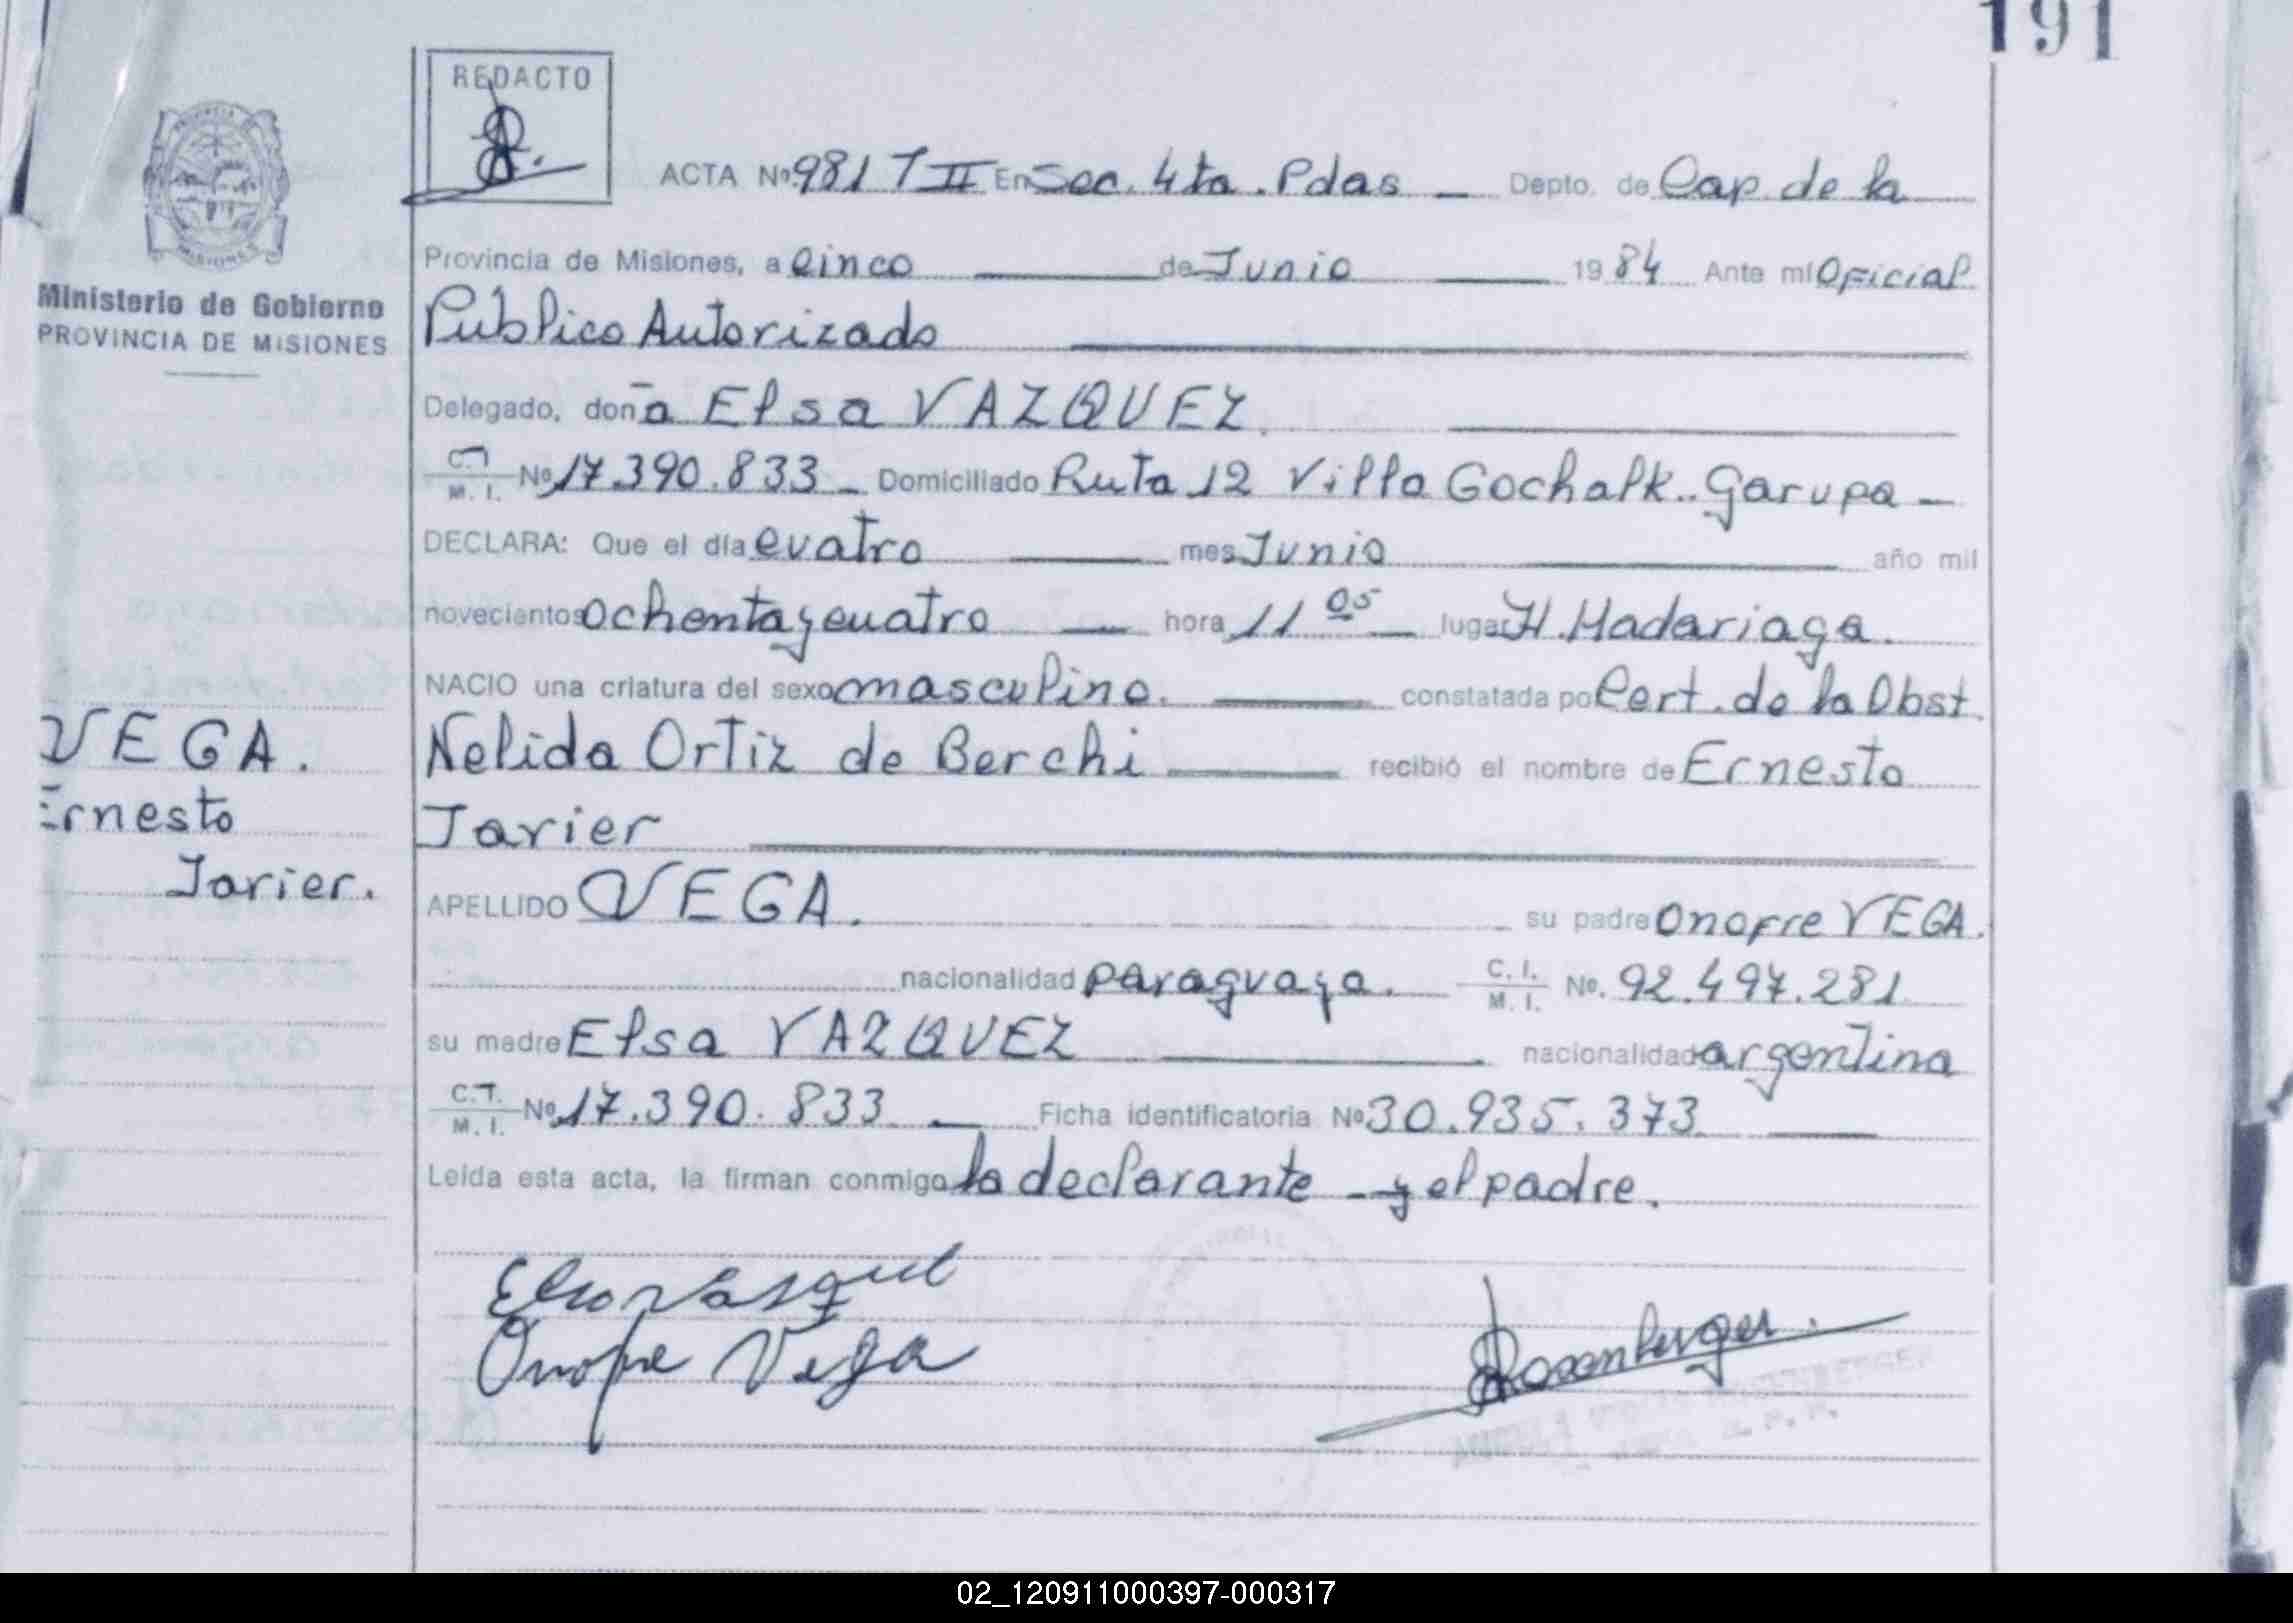 191
REDACTO
ACTA Nº 981 T II En Sec. 4ta. Pdas - Depto. de Cap. de la
PROVINCIA DE MISIONES
Provincia de Misiones, a cinco de Junio 1984 Ante mí Oficial
Ministerio de Gobierno
PROVINCIA DE MISIONES
Público Autorizado
Delegado, doña Elsa VAZQUEZ.
C.I. M. I. Nº 17.390.833 - Domiciliado Ruta 12 Villa Gochalk.. Garupa -
DECLARA: Que el día cuatro mes Junio año mil
novecientos ochenta y cuatro hora 11 05 lugar H. Madariaga.
NACIO una criatura del sexo masculino. constatada po Cert. de la Obst.
Nelida Ortiz de Berchi recibió el nombre de Ernesto
Javier
VEGA.
Ernesto
Javier.
APELLIDO VEGA. su padre Onofre VEGA.
nacionalidad paraguaya. C. I. M. I. Nº. 92.497.281
su madre Elsa VAZQUEZ nacionalidad argentina
C.I. M. I. Nº 17.390.833 Ficha identificatoria Nº 30.935.373
Leída esta acta, la firman conmigo la declarante - y el padre.
Elsa Vasquez
Onofre Vega
Rosenberger.
02_120911000397-000317